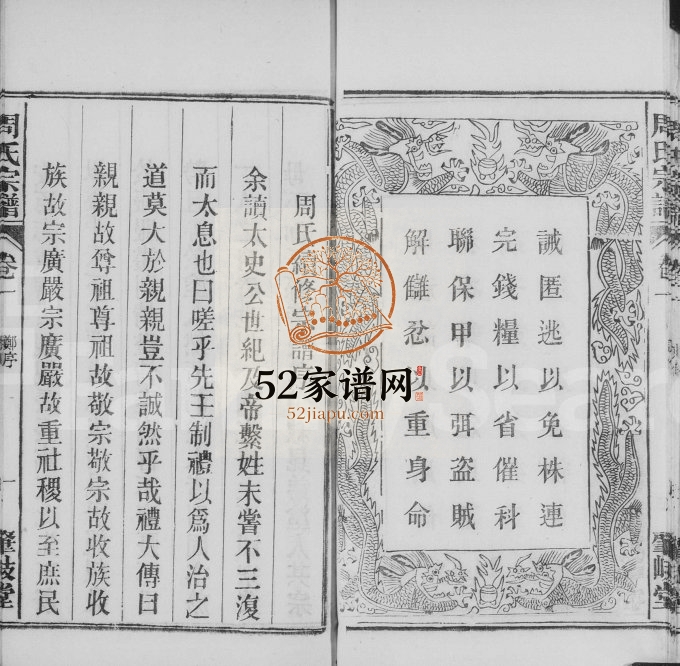 誡匿逃以免株連
完錢糧以省催科
聯保甲以弭盜賊
解讎忿以重身命
周氏續修宗譜
余讀太史公世紀及帝繫姓未嘗不三復
而太息也曰嗟乎先王制禮以爲人治之
道莫大於親親豈不誠然乎哉禮大傳曰
親親故尊祖尊祖故敬宗敬宗故收族收
族故宗廣嚴宗廣嚴故重社稷以至庶民
周氏宗譜
卷一
鄭序
一
肇岐堂
52家谱网
52jiapu.com